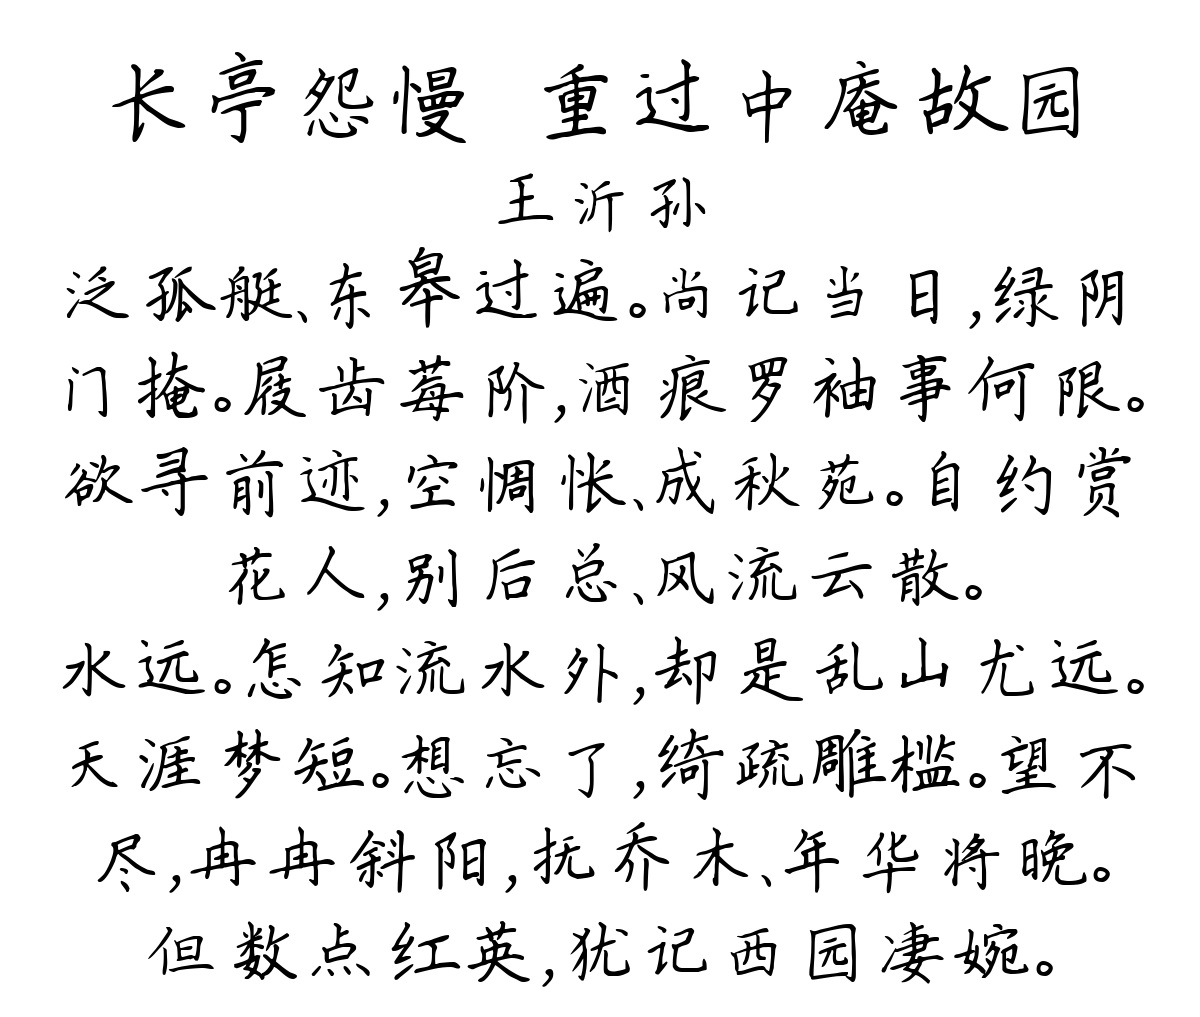 长亭怨慢 重过中庵故园
王沂孙
泛孤艇、东皋过遍。尚记当日,绿阴
门掩。屐齿莓阶,酒痕罗袖事何限。
欲寻前迹,空惆怅、成秋苑。自约赏
花人,别后总、风流云散。
水远。怎知流水外,却是乱山尤远。
天涯梦短。想忘了,绮疏雕槛。望不
尽,冉冉斜阳,抚乔木、年华将晚。
但数点红英,犹记西园凄婉。